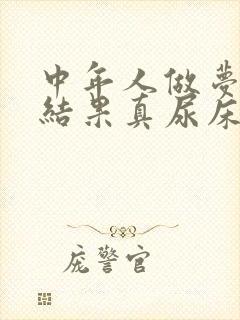 中年人做夢
結果真尿床
庞警官